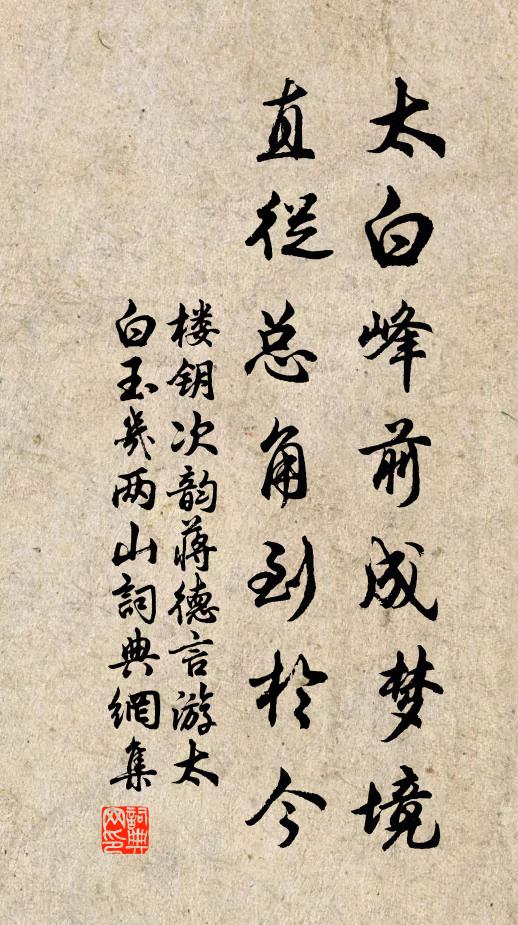 太白峰前成梦境
直從总角到於今
楼钥次韵蒋德言游太
白玉幾两山詞典網集
詞典
网印